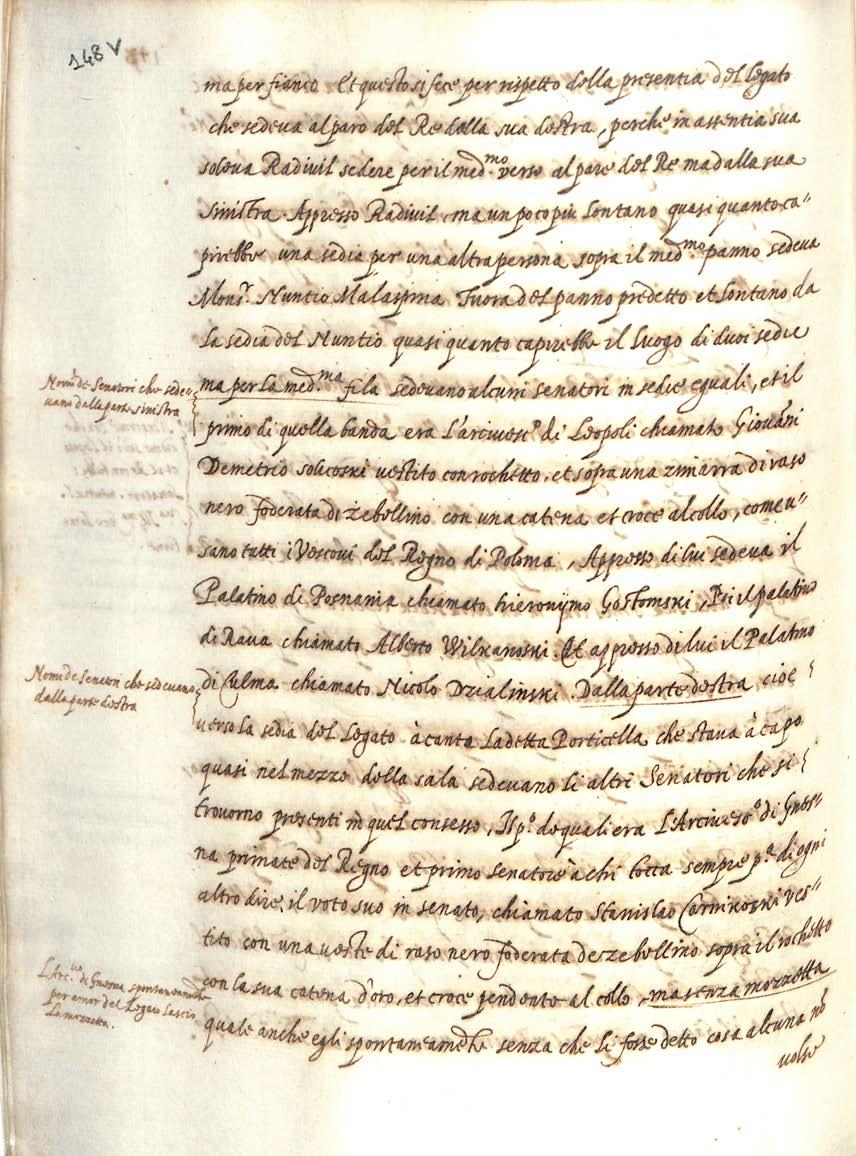 148 v
ma per fianco Et questo si fece per rispetto della presentia del legato
che sedeva al paro del Re dalla sua destra, perche in assentia sua
soleva Radivil sedere per il med.mo verso al pare del Re ma dalla sua
sinistra. Appresso Radivil, ma un poco più lontano quasi quanto ca"
pirebbe una sedia per una altra persona sopra il med.mo panno sedeva
Mons.r Nuntio Malaspina Fuora del panno predetto et lontano da
la sedia del Nuntio quasi quanto capirebbe il luogo di duoi sedie
Nomi de Senatori che sede"
vano dalla parte sinistra
ma per la med.ma fila sedevano alcuni senatori in sedie eguali, et il
primo di quella banda era L'arcivesc.o di Leopoli chiamato Giovãni
Demetrio solicoski vestito con rochetto, et sopra una zimarra di raso
nero foderata di zebellino con una catena et croce al collo, come u"
sano tutti i Vescovi del Regno di Polonia, Appresso di lui sedeva il
Palatino di Posnania chiamato hieronymo Gostomski, Poi il palatino
di Rava chiamato Alberto Wilxanoski. Et appresso di lui il Palatino
Nomi de Senatori che sedevano
dalla parte destra
di Culma chiamato Nicolo Dzialinski. Dalla parte destra, cioe
verso la sedia del Legato à canto La detta Porticella che stava à capo
quasi nel mezzo della sala sedevano li altri Senatori che si
trovorno presenti in quel consesso, Il p.o de quali era L'Arcivesc.o di Gnes"
na primate del Regno et primo senatore à chi tocca sempre p.a di ogni
altro dire il voto suo in senato, chiamato Stanislao Carnikoski ves"
tito con una veste di raso nero foderata de zebellino sopra il rochetto
L'Arc.vo di Gnesna spontaneamẽte
per amor del Legato lascio
La mozzetta.
con la sua catena d'oro, et croce pendente al collo, ma senza mozzetta
quale anche egli spontaneamẽte senza che li fosse detto cosa alcuna nõ
volse